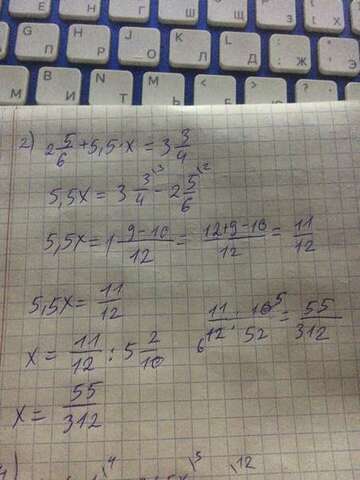 Е Н Г Ш Щ З Х
П Р О Л Д Ж Э
М И Т Ь Б Ю
2) 2 5/6 + 5,5·x = 3 3/4
5,5x = 3 3/4 \3 − 2 5/6 \2
5,5x = 1 9−10/12 = 12+9−10/12 = 11/12
5,5x = 11/12
x = 11/12 : 5 2/10
11/12 · 10/52 = 55/312
6 5
x = 55/312
\4 \5 \12